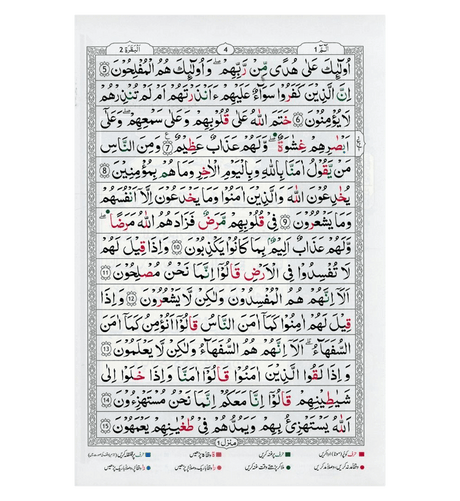 الٓمّٓ 1 4 البقرة 2
اُولٰٓئِكَ عَلٰى هُدًى مِّنْ رَّبِّهِمْ ۗ وَاُولٰٓئِكَ هُمُ الْمُفْلِحُوْنَ 5
اِنَّ الَّذِيْنَ كَفَرُوْا سَوَآءٌ عَلَيْهِمْ ءَاَنْذَرْتَهُمْ اَمْ لَمْ تُنْذِرْهُمْ
لَا يُؤْمِنُوْنَ 6 خَتَمَ اللّٰهُ عَلٰى قُلُوْبِهِمْ وَعَلٰى سَمْعِهِمْ ۗ وَعَلٰٓى
اَبْصَارِهِمْ غِشَاوَةٌ ۖ وَّلَهُمْ عَذَابٌ عَظِيْمٌ 7 وَمِنَ النَّاسِ
مَنْ يَّقُوْلُ اٰمَنَّا بِاللّٰهِ وَبِالْيَوْمِ الْاٰخِرِ وَمَا هُمْ بِمُؤْمِنِيْنَ 8
يُخٰدِعُوْنَ اللّٰهَ وَالَّذِيْنَ اٰمَنُوْا وَمَا يَخْدَعُوْنَ اِلَّآ اَنْفُسَهُمْ
وَمَا يَشْعُرُوْنَ 9 فِيْ قُلُوْبِهِمْ مَّرَضٌ ۙ فَزَادَهُمُ اللّٰهُ مَرَضًا ۚ
وَلَهُمْ عَذَابٌ اَلِيْمٌ ۢ بِمَا كَانُوْا يَكْذِبُوْنَ 10 وَاِذَا قِيْلَ لَهُمْ
لَا تُفْسِدُوْا فِي الْاَرْضِ قَالُوْٓا اِنَّمَا نَحْنُ مُصْلِحُوْنَ 11
اَلَآ اِنَّهُمْ هُمُ الْمُفْسِدُوْنَ وَلٰكِنْ لَّا يَشْعُرُوْنَ 12 وَاِذَا
قِيْلَ لَهُمْ اٰمِنُوْا كَمَآ اٰمَنَ النَّاسُ قَالُوْٓا اَنُؤْمِنُ كَمَآ اٰمَنَ
السُّفَهَآءُ ۗ اَلَآ اِنَّهُمْ هُمُ السُّفَهَآءُ وَلٰكِنْ لَّا يَعْلَمُوْنَ 13
وَاِذَا لَقُوا الَّذِيْنَ اٰمَنُوْا قَالُوْٓا اٰمَنَّا ۖ وَاِذَا خَلَوْا اِلٰى
شَيٰطِيْنِهِمْ قَالُوْٓا اِنَّا مَعَكُمْ ۙ اِنَّمَا نَحْنُ مُسْتَهْزِءُوْنَ 14
اَللّٰهُ يَسْتَهْزِئُ بِهِمْ وَيَمُدُّهُمْ فِيْ طُغْيَانِهِمْ يَعْمَهُوْنَ 15
منزل 1